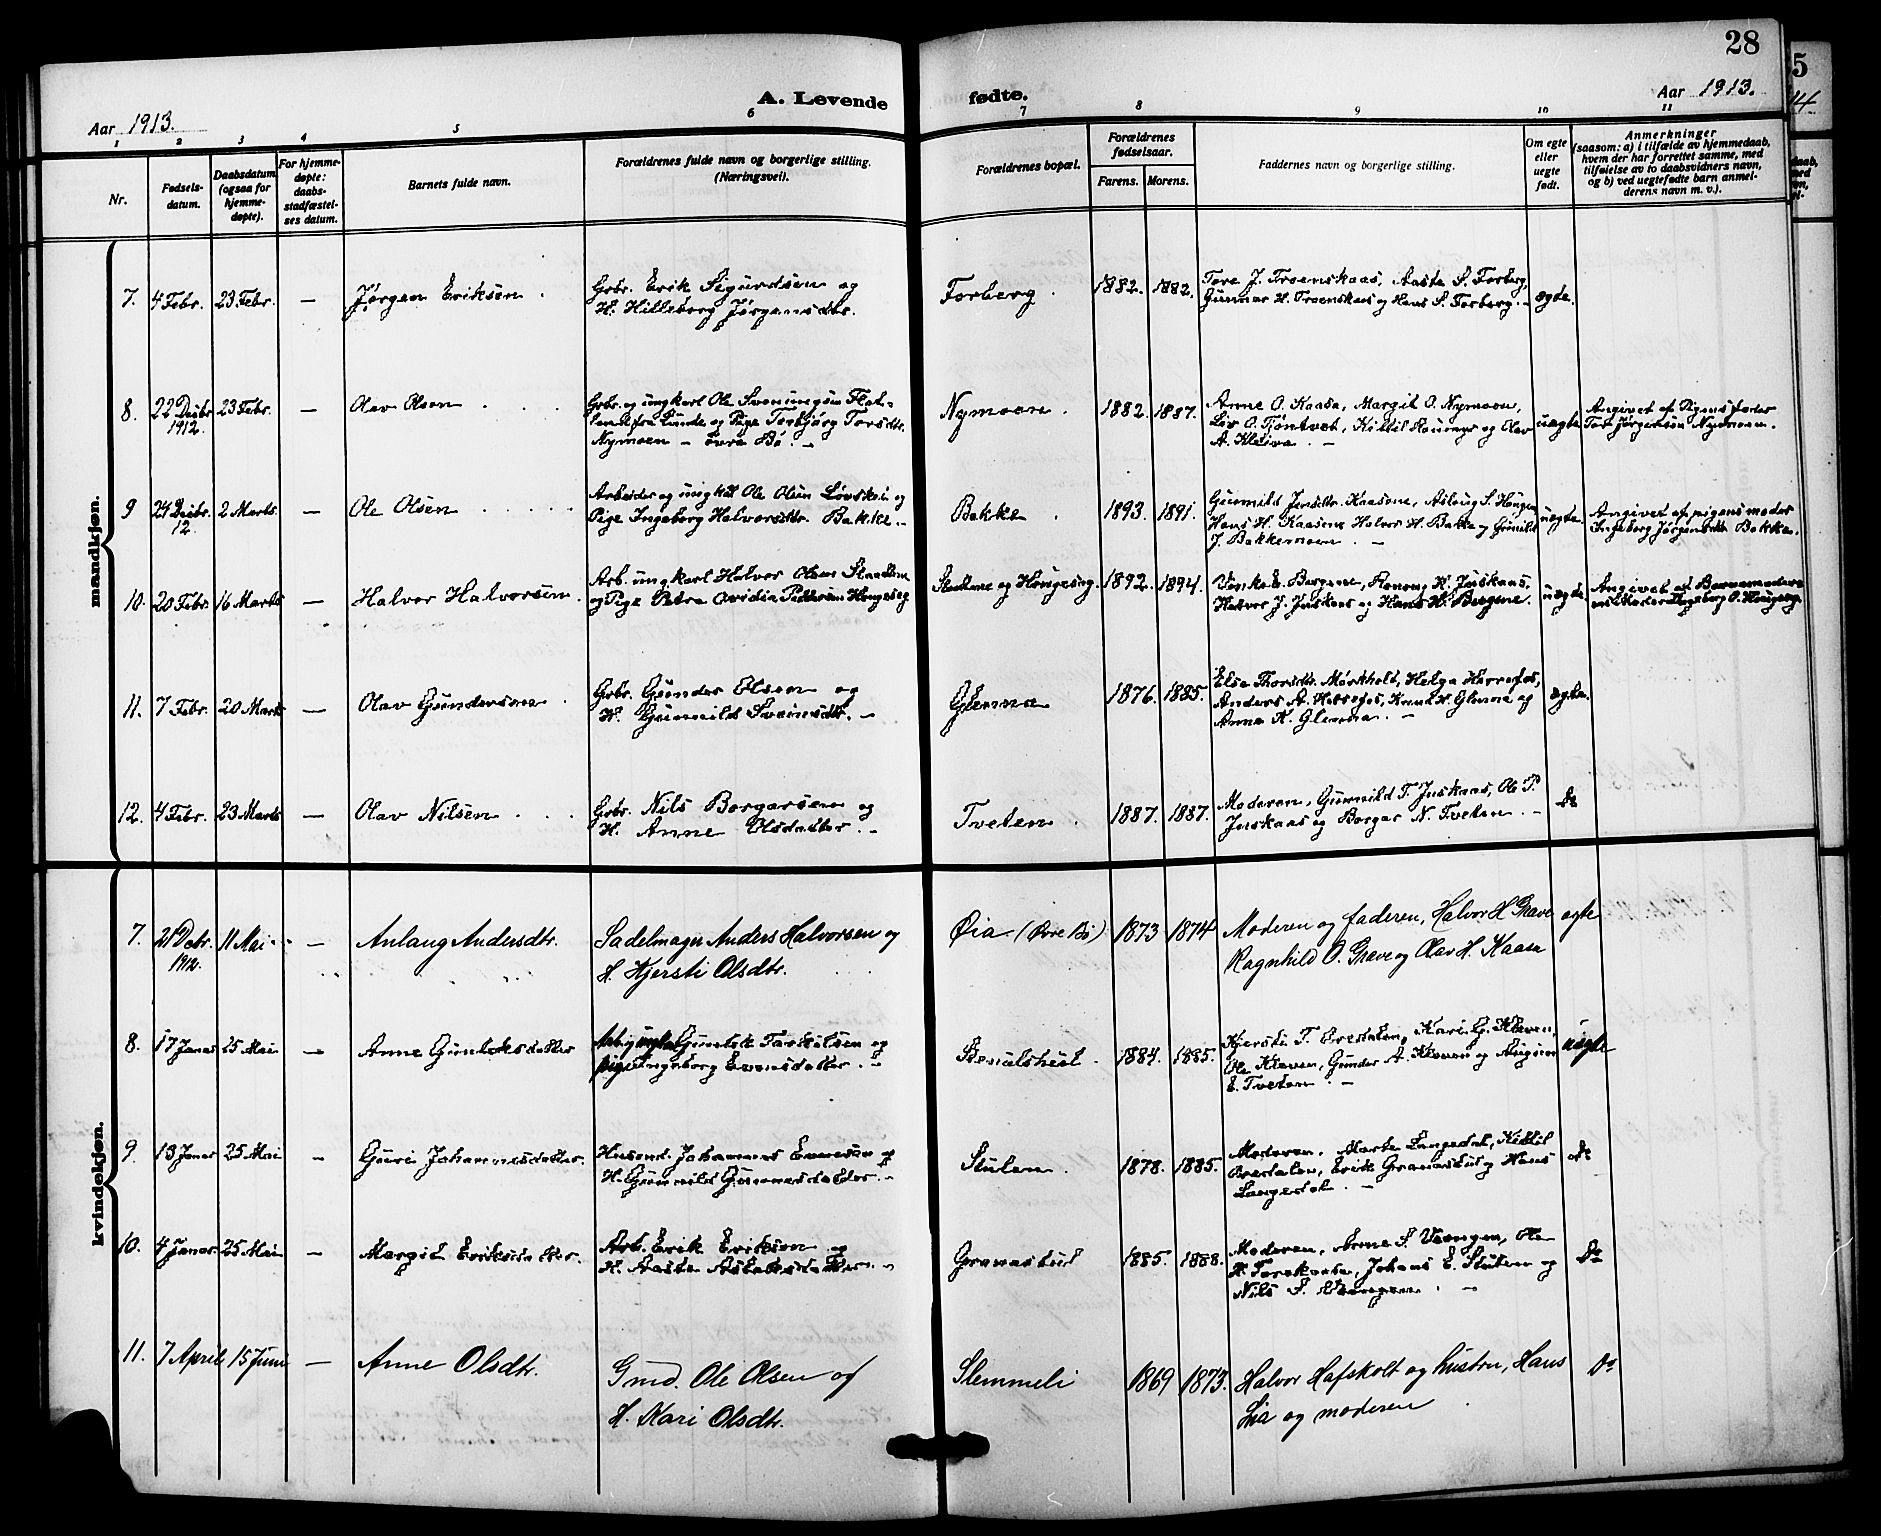 28
Aar 1913.
A. Levende fødte.
Aar 1913.
1 2 3 4 5 6 7 8 9 10 11
Nr.
Fødsels-
datum.
Daabsdatum
(ogsaa for
hjemme-
døpte).
For hjemme-
døpte:
daabs-
stadfæstel-
ses datum.
Barnets fulde navn.
Forældrenes fulde navn og borgerlige stilling.
(Næringsvei).
Forældrenes bopæl.
Forældrenes
fødselsaar.
Farens. Morens.
Faddernes navn og borgerlige stilling.
Om egte
eller
uegte
født.
Anmerkninger
(saasom: a) i tilfælde av hjemmedaab,
hvem der har forrettet samme, med
tilføielse av to daabsvidners navn,
og b) ved uegtefødte barn anmel-
derens navn m. v.).
mandkjøn.
7. 4 Febr. 23 Febr. — Jørgen Eriksen.
Grbr. Erik Sigurdsen og
H. Hilleborg Jørgensdtr.
Forberg. 1882. 1882.
Tore J. Troenskaas, Aaste S. Forberg,
Gunnar H. Troenskaas og Hans S. Forberg. —
ægte.
8. 22 Desbr. 1912. 23 Febr. — Olav Olsen
Grbr. og ungkarl Ole Sveinungsen Flat-
land fra Lunde og Pige Torbjørg Torsdtr.
Nymoen — Øvre Bø. —
Nymoen. 1882. 1887.
Anne O. Kaasa, Margit O. Nymoen,
Liv O. Tjøntvet, Kittil og Olav
A. Kleiva. —
uægte
Angivet af Pigens fader
Tor Jørgensen Nymoen.
9 24 Desbr. 12. 2 Marts — Ole Olsen
Arbeider og ungkarl Ole Olsen og
Pige Ingeborg Halvorsdtr. Bakke. —
Bakke. 1893. 1891.
Gunnild Jensdtr. Kaasene, Aslaug S. Haugen
Hans H. Kaasene Halvor H. Bakke og Gunnild
J. Bakkemoen. —
uægte
Angivet af pigens moder
Ingeborg Jørgensdtr Bakke.
10. 20 Febr. 16 Marts — Halvor Halvorsen.
Arb. ungkarl Halvor Olsen
og Pige Petra Ovidia Pedersen Haugeseg
og Haugeseg. 1892. 1894.
Bergene, H. Juskaas
Halvor J. Juskaas og Hans H. Bergene.
uægte.
Angivet af Barnemoderens
Moder Ingeborg O. Haugeseg.
11. 7 Febr. 20 Marts — Olav Gundersen
Grbr. Gunder Olsen og
H. Gunnild Sveinsdtr. —
Glenna 1876. 1885.
Else Thorsdtr. Mørkholt, Helga Herrefos,
Anders A. Herrefos, Knut H. Glenna og
Anne K. Glenna. —
ægte.
12. 4 Febr. 23 Marts — Olav Nilsen
Grbr. Nils Borgarsen og
H. Anne Olsdatter. —
Tveten. 1887. 1887.
Moderen, Gunnild T. Juskaas, Ole P.
Juskaas og Borgar N. Tveten. —
Do
kvindekjøn.
7. 21 Debr. 1912. 11 Mai — Anlaug Andersdtr.
Sadelmager Anders Halvorsen og
H. Kjersti Olsdtr.
Øia (Øvre Bø) 1873 1874
Moderen og faderen, Halvor H Grave
Ragnhild O. Grave og Olav H. Kaasa
ægte
8. 17 Januar 25 Mai — Anne Gunleksdatter
Gunlek Torkilsen og
pige Ingeborg Evensdatter. —
1884. 1885.
Kjersti T. Evesdalen, Kari G. Kleven,
Ole Kleven, Gunder A. Kleven og
E. Tveten. —
uægte
9. 13 Januar 25 Mai — Guri Johannesdatter.
Husmd. Johannes Evensen og
H. Gunnild Gunnarsdatter. —
Stulen. 1878. 1885.
Moderen, Marte Langedal, Kittil
Øvesdalen, Erik Granastul og Hans
Langedal. —
do
10. 4 Januar 25 Mai — Margit Eriksdatter.
Arb. Erik Eriksen og
H. Aaste Aslaksdatter. —
Granastul 1885. 1888.
Moderen, Anne S. Vaangen, Ole
H. Torekaasa, Johans E. Stulen og
Nils S. —
Do
11. 7 April 15 Juni — Anne Olsdtr.
Gmd. Ole Olsen og
H. Kari Olsdtr.
Slemmeli 1869 1873.
Halvor Hafskolt og hustru, Hans
Lia og moderen
Do